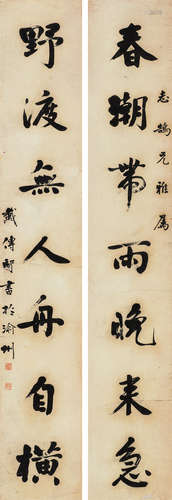 春潮帶雨晚来急
志鵠兄雅屬
野渡無人舟自橫
戴傳賢書於渝州